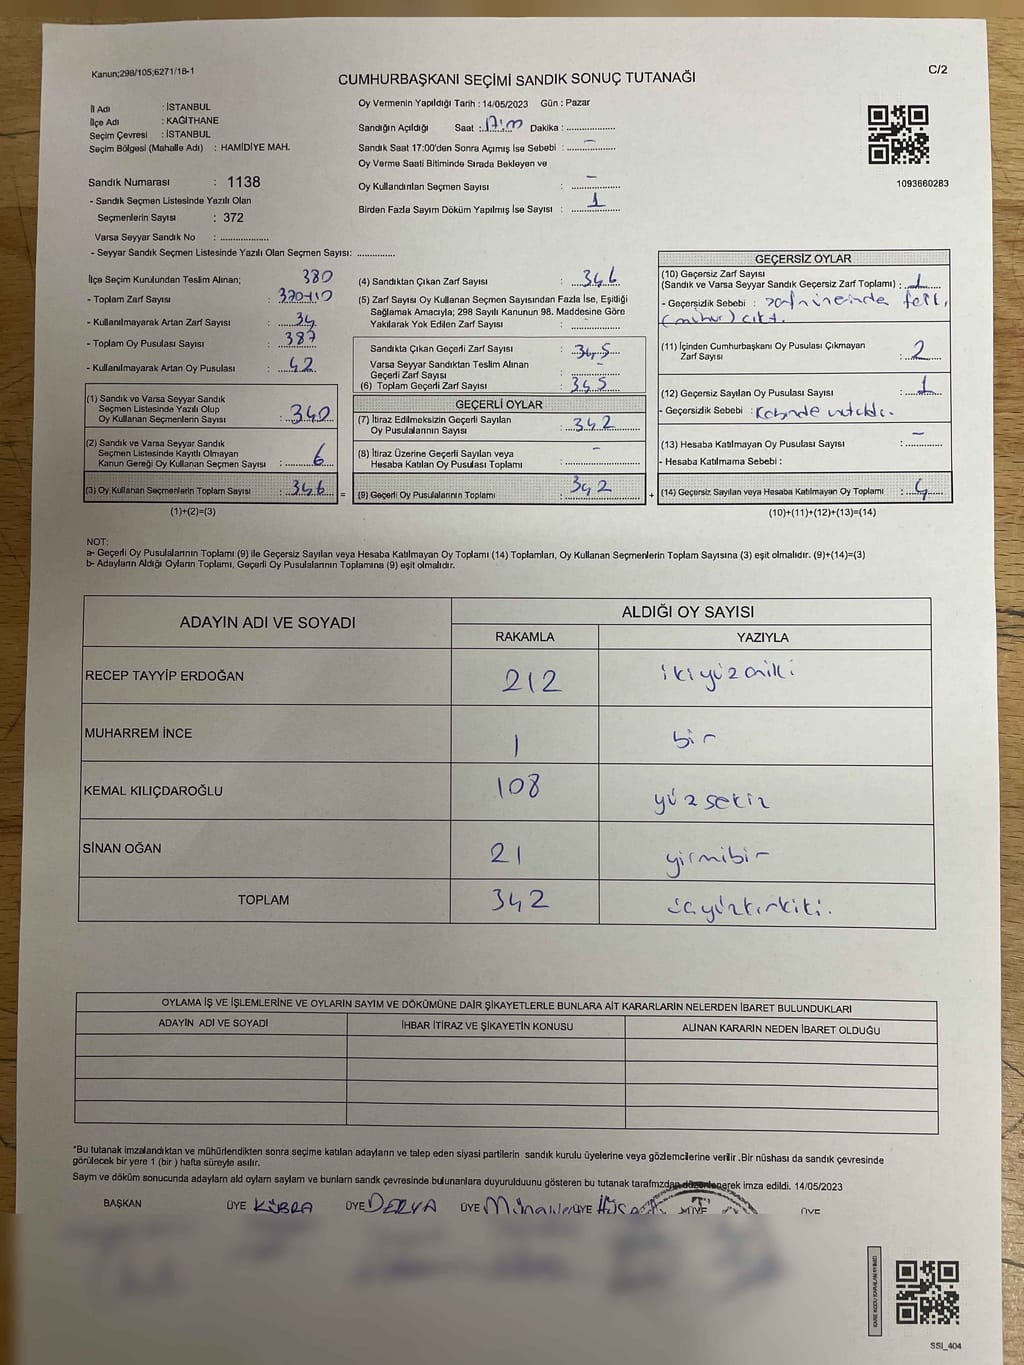 Kanun;298/105;6271/18-1
C/2
CUMHURBAŞKANI SEÇİMİ SANDIK SONUÇ TUTANAĞI
İl Adı : İSTANBUL
İlçe Adı : KAĞITHANE
Seçim Çevresi : İSTANBUL
Seçim Bölgesi (Mahalle Adı) : HAMİDİYE MAH.
Sandık Numarası : 1138
- Sandık Seçmen Listesinde Yazılı Olan
Seçmenlerin Sayısı : 372
Varsa Seyyar Sandık No : ...................
- Seyyar Sandık Seçmen Listesinde Yazılı Olan Seçmen Sayısı: ..............
Oy Vermenin Yapıldığı Tarih : 14/05/2023 Gün : Pazar
Sandığın Açıldığı Saat : 17:00 Dakika : ..................
Sandık Saat 17:00'den Sonra Açımış İse Sebebi : -
Oy Verme Saati Bitiminde Sırada Bekleyen ve
Oy Kullandırılan Seçmen Sayısı : -
Birden Fazla Sayım Döküm Yapılmış İse Sayısı : 1
1093660283
İlçe Seçim Kurulundan Teslim Alınan; 380
- Toplam Zarf Sayısı : 370+10
- Kullanılmayarak Artan Zarf Sayısı : 34
- Toplam Oy Pusulası Sayısı : 387
- Kullanılmayarak Artan Oy Pusulası : 42
(1) Sandık ve Varsa Seyyar Sandık
Seçmen Listesinde Yazılı Olup
Oy Kullanan Seçmenlerin Sayısı : 340
(2) Sandık ve Varsa Seyyar Sandık
Seçmen Listesinde Kayıtlı Olmayan
Kanun Gereği Oy Kullanan Seçmen Sayısı : 6
(3) Oy Kullanan Seçmenlerin Toplam Sayısı : 346 =
(1)+(2)=(3)
(4) Sandıktan Çıkan Zarf Sayısı : 346
(5) Zarf Sayısı Oy Kullanan Seçmen Sayısından Fazla İse, Eşitliği
Sağlamak Amacıyla; 298 Sayılı Kanunun 98. Maddesine Göre
Yakılarak Yok Edilen Zarf Sayısı : ..................
Sandıkta Çıkan Geçerli Zarf Sayısı : 345
Varsa Seyyar Sandıktan Teslim Alınan
Geçerli Zarf Sayısı : -
(6) Toplam Geçerli Zarf Sayısı : 345
GEÇERLİ OYLAR
(7) İtiraz Edilmeksizin Geçerli Sayılan
Oy Pusulalarının Sayısı : 342
(8) İtiraz Üzerine Geçerli Sayılan veya
Hesaba Katılan Oy Pusulası Toplamı : -
(9) Geçerli Oy Pusulalarının Toplamı : 342 +
GEÇERSİZ OYLAR
(10) Geçersiz Zarf Sayısı
(Sandık ve Varsa Seyyar Sandık Geçersiz Zarf Toplamı) : 1
- Geçersizlik Sebebi :
(mühür) çıktı.
(11) İçinden Cumhurbaşkanı Oy Pusulası Çıkmayan
Zarf Sayısı : 2
(12) Geçersiz Sayılan Oy Pusulası Sayısı : 1
- Geçersizlik Sebebi :
(13) Hesaba Katılmayan Oy Pusulası Sayısı : -
- Hesaba Katılmama Sebebi :
(14) Geçersiz Sayılan veya Hesaba Katılmayan Oy Toplamı : 4
(10)+(11)+(12)+(13)=(14)
NOT:
a- Geçerli Oy Pusulalarının Toplamı (9) ile Geçersiz Sayılan veya Hesaba Katılmayan Oy Toplamı (14) Toplamları, Oy Kullanan Seçmenlerin Toplam Sayısına (3) eşit olmalıdır. (9)+(14)=(3)
b- Adayların Aldığı Oyların Toplamı, Geçerli Oy Pusulalarının Toplamına (9) eşit olmalıdır.
ADAYIN ADI VE SOYADI
ALDIĞI OY SAYISI
RAKAMLA YAZIYLA
RECEP TAYYİP ERDOĞAN 212 ikiyüzoniki
MUHARREM İNCE 1 bir
KEMAL KILIÇDAROĞLU 108 yüzsekiz
SİNAN OĞAN 21 yirmibir
TOPLAM 342 üçyüzkırkiki.
OYLAMA İŞ VE İŞLEMLERİNE VE OYLARIN SAYIM VE DÖKÜMÜNE DAİR ŞİKAYETLERLE BUNLARA AİT KARARLARIN NELERDEN İBARET BULUNDUKLARI
ADAYIN ADI VE SOYADI İHBAR İTİRAZ VE ŞİKAYETİN KONUSU ALINAN KARARIN NEDEN İBARET OLDUĞU
*Bu tutanak imzalandıktan ve mühürlendikten sonra seçime katılan adayların ve talep eden siyasi partilerin sandık kurulu üyelerine veya gözlemcilerine verilir .Bir nüshası da sandık çevresinde
görülecek bir yere 1 (bir ) hafta süreyle asılır.
Sayım ve döküm sonucunda adayların aldı oyların sayları ve bunların sandık çevresinde bulunanlara duyurulduunu gösteren bu tutanak tarafmzdan düzenlenerek imza edildi. 14/05/2023
BAŞKAN ÜYE KÜBRA ÜYE DERYA ÜYE ÜYE ÜYE ÜYE
SSI_404